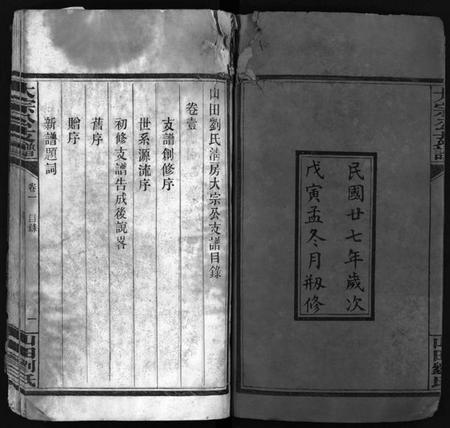 民國廿七年歲次
戊寅孟冬月刱修
山田劉氏清房大宗公支譜目錄
卷壹
支譜創修序
世系源流序
初修支譜告成後說畧
舊序
贈序
新譜題詞
大宗公支譜
卷一
目錄
一
山田劉氏